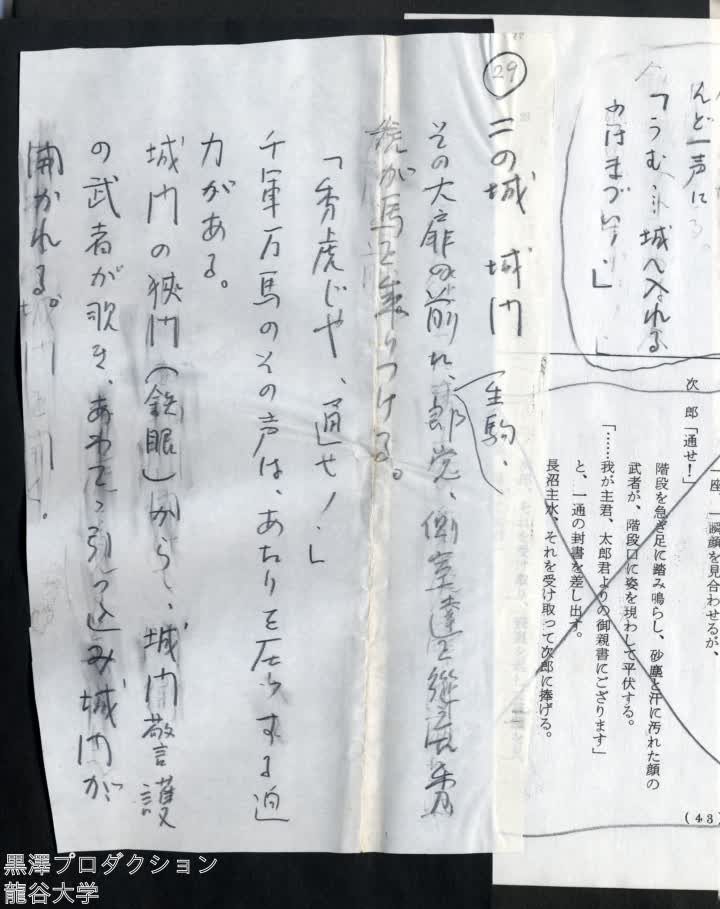 んど一声に
「うむ…城へ入れる
のはまづい…」
座、一瞬顔を見合わせるが、
次 郎「通せ!」
階段を急ぎ足に踏み鳴らし、砂塵と汗に汚れた顔の
武者が、階段口に姿を現わして平伏する。
「……我が主君、太郎君よりの御親書にござります」
と、一通の封書を差し出す。
長沼主水、それを受け取って次郎に捧げる。
(43)
29
二の城 城門
生駒、
その大扉の前に、
虎が馬を乗りつける。
「秀虎じゃ、通せ!」
千軍万馬のその声は、あたりを圧する迫
力がある。
城門の狭間(鉄眼)から、城門警護
の武者が覗き、あわてゝ引っ込み城門が
開かれる。
黒澤プロダクション
龍谷大学